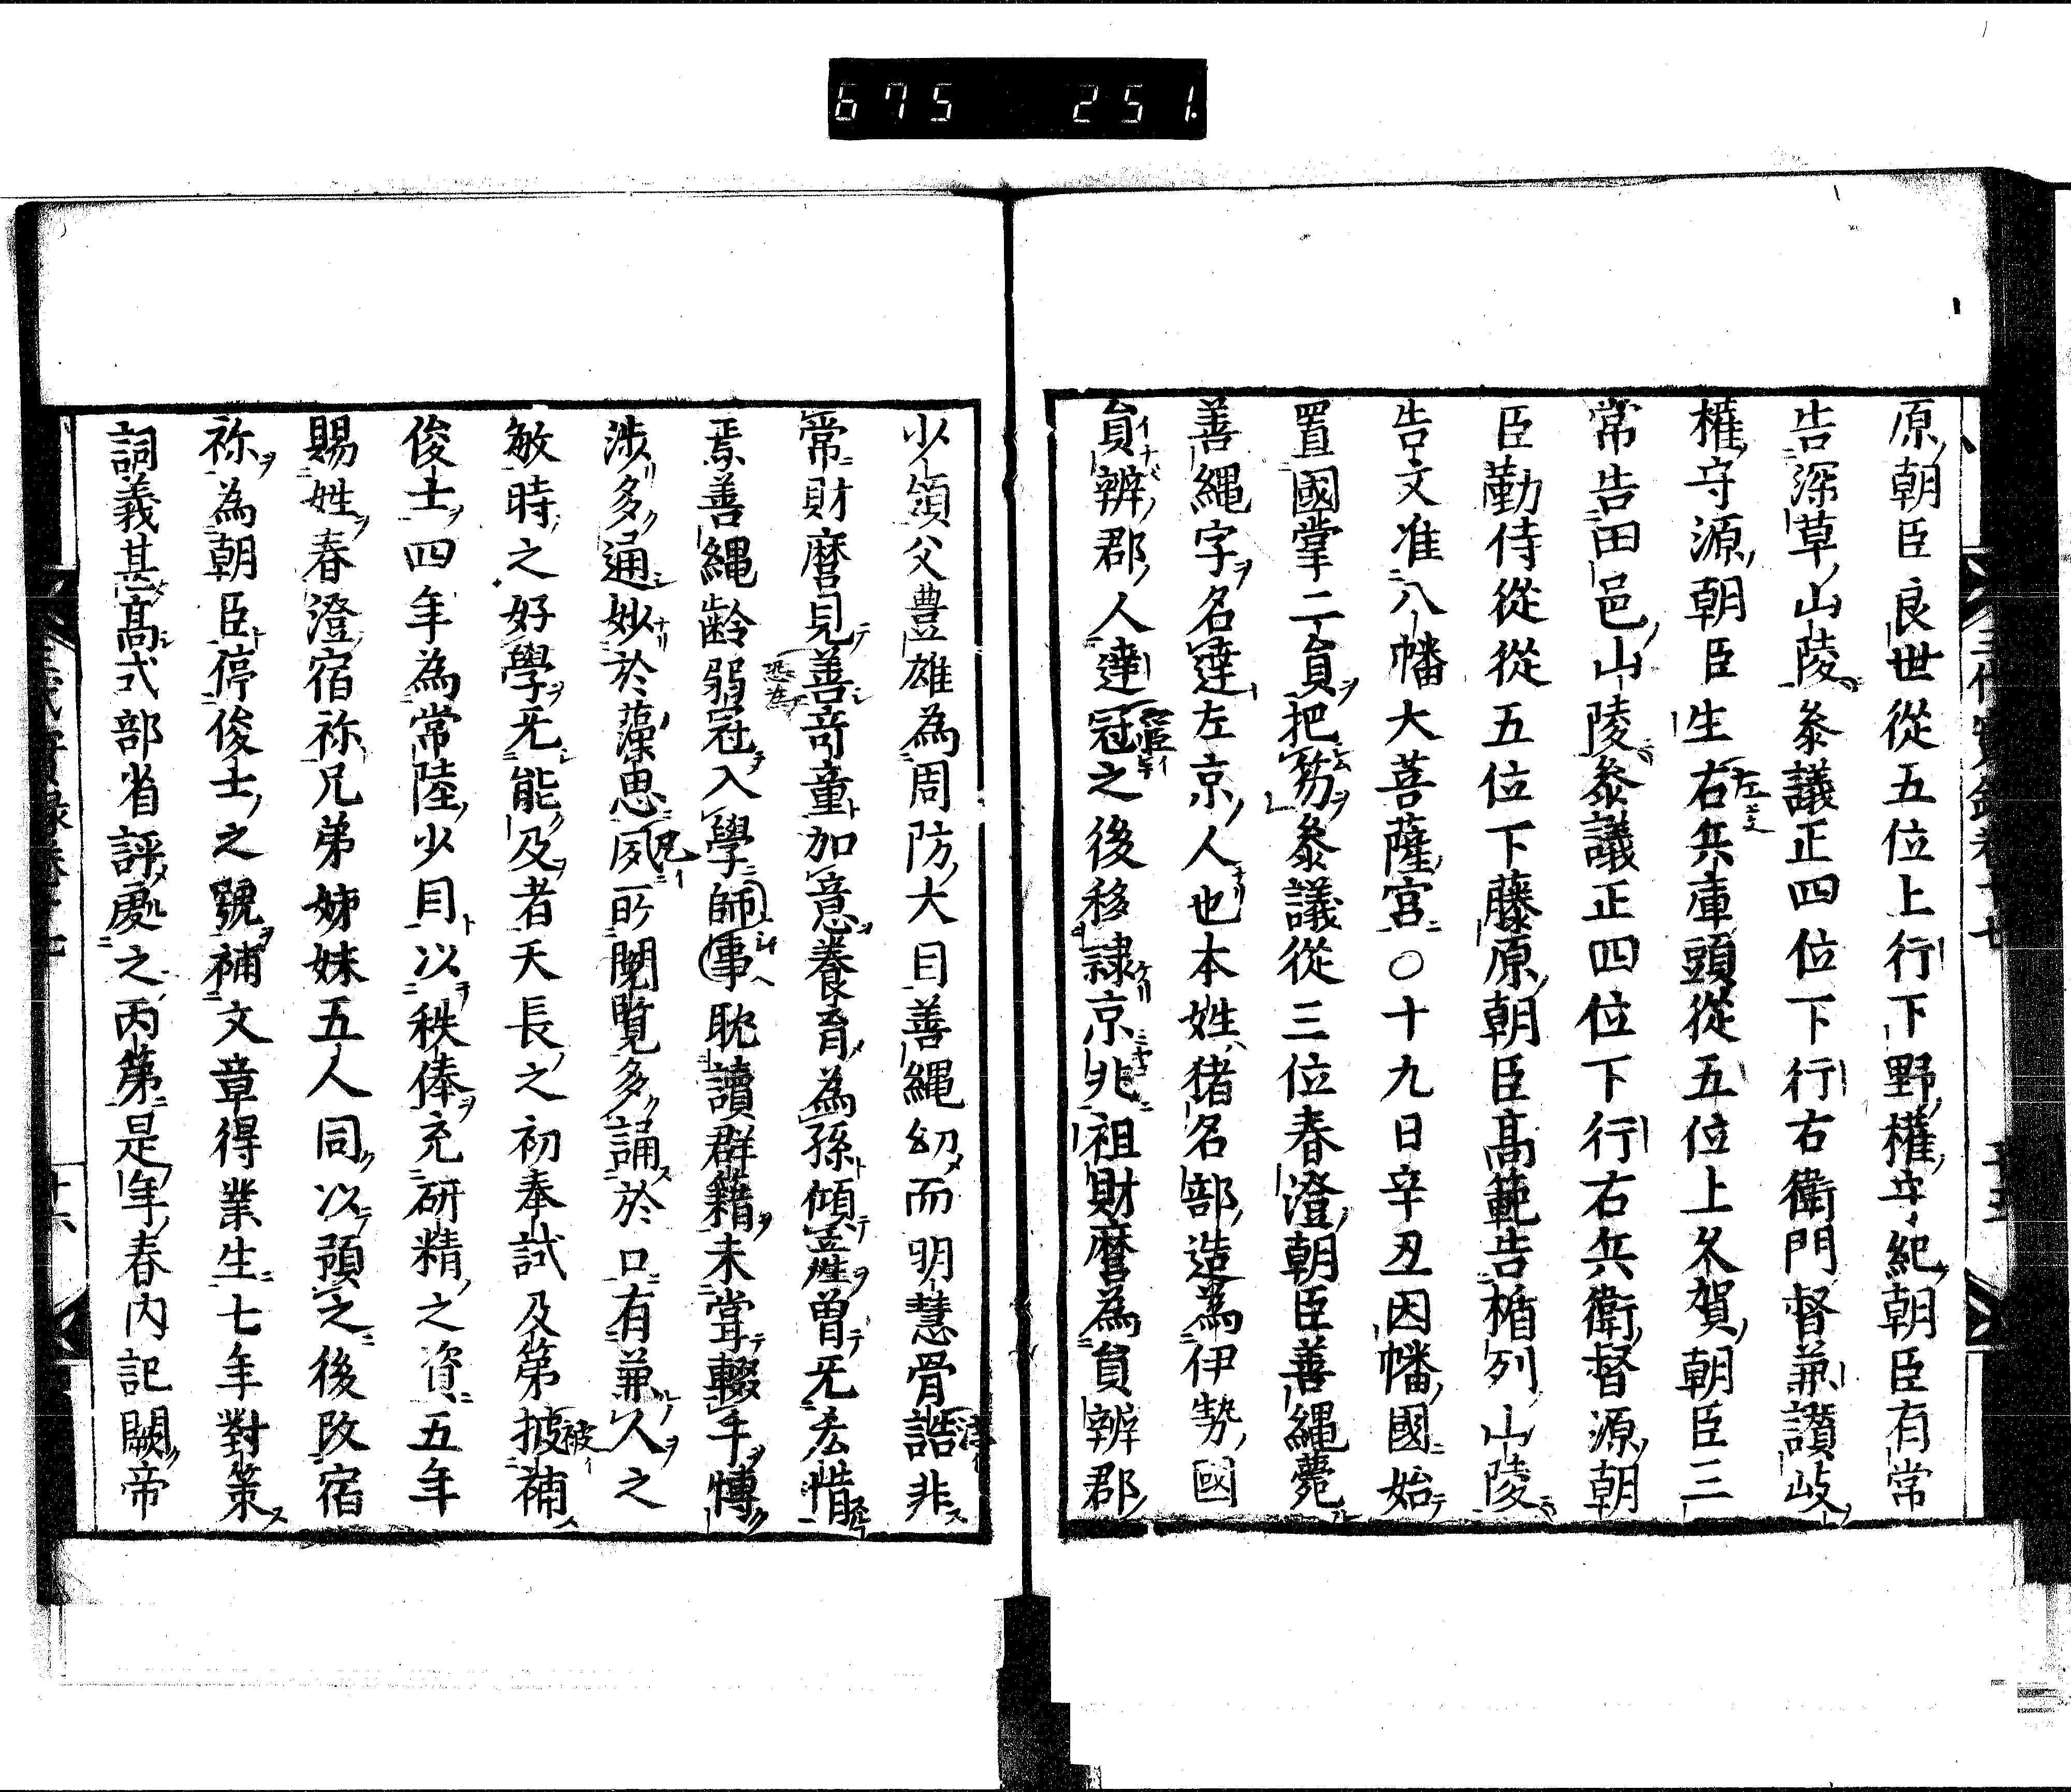 675 251.
原朝臣良世從五位上行下野權守紀朝臣有常
告深草山陵參議正四位下行右衛門督兼讃岐
權守源朝臣生右兵庫頭從五位上久賀朝臣三
常告田邑山陵參議正四位下行右兵衛督源朝
臣勤侍從從五位下藤原朝臣高範告楯列山陵
告文准八幡大菩薩宮〇十九日辛丑因幡國始
置國掌二員把笏參議從三位春澄朝臣善繩薨
善繩字名達左京人也本姓猪名部造為伊勢國
員辨郡人達冠之後移隷京兆祖財麿為員辨郡
少領父豊雄為周防大目善繩幼而明慧骨誥非
常財麿見善奇童加意養育為孫傾産曽无悋惜
焉善繩齢弱冠入學師事耽讀群籍未甞輟手博
渉多通妙於藻思夙所閲覧多誦於口有兼人之
敏時之好學无能及者天長之初奉試及第披補
俊士四年為常陸少目以秩俸充研精之資五年
賜姓春澄宿祢兄弟姊妹五人同以預之後改宿
祢為朝臣停俊士之號補文章得業生七年對策
詞義甚高式部省評處之丙第是年春内記闕帝